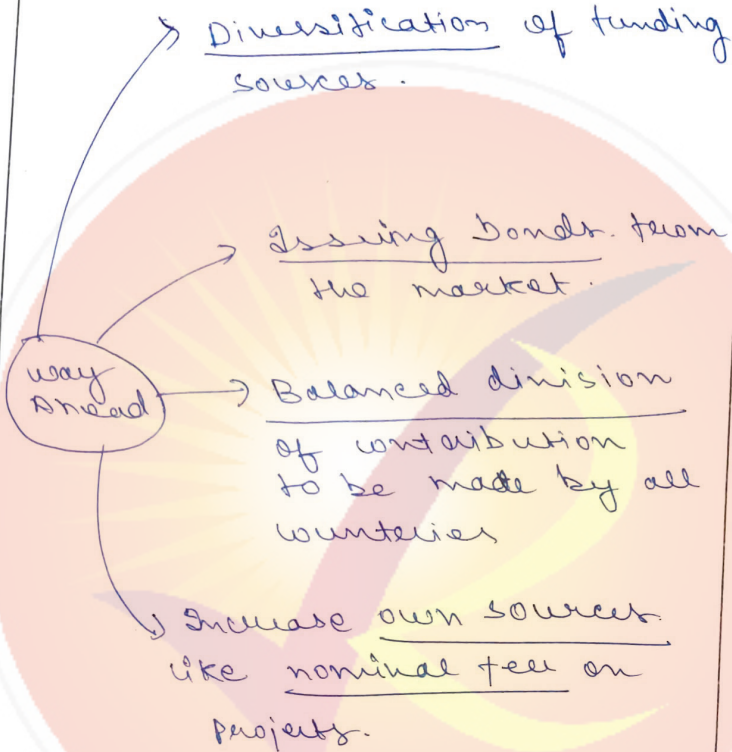 Diversification of funding
sources.
Issuing bonds from
the market.
way
Ahead
Balanced division
of contribution
to be made by all
counteries
Increase own sources
like nominal fee on
projects.